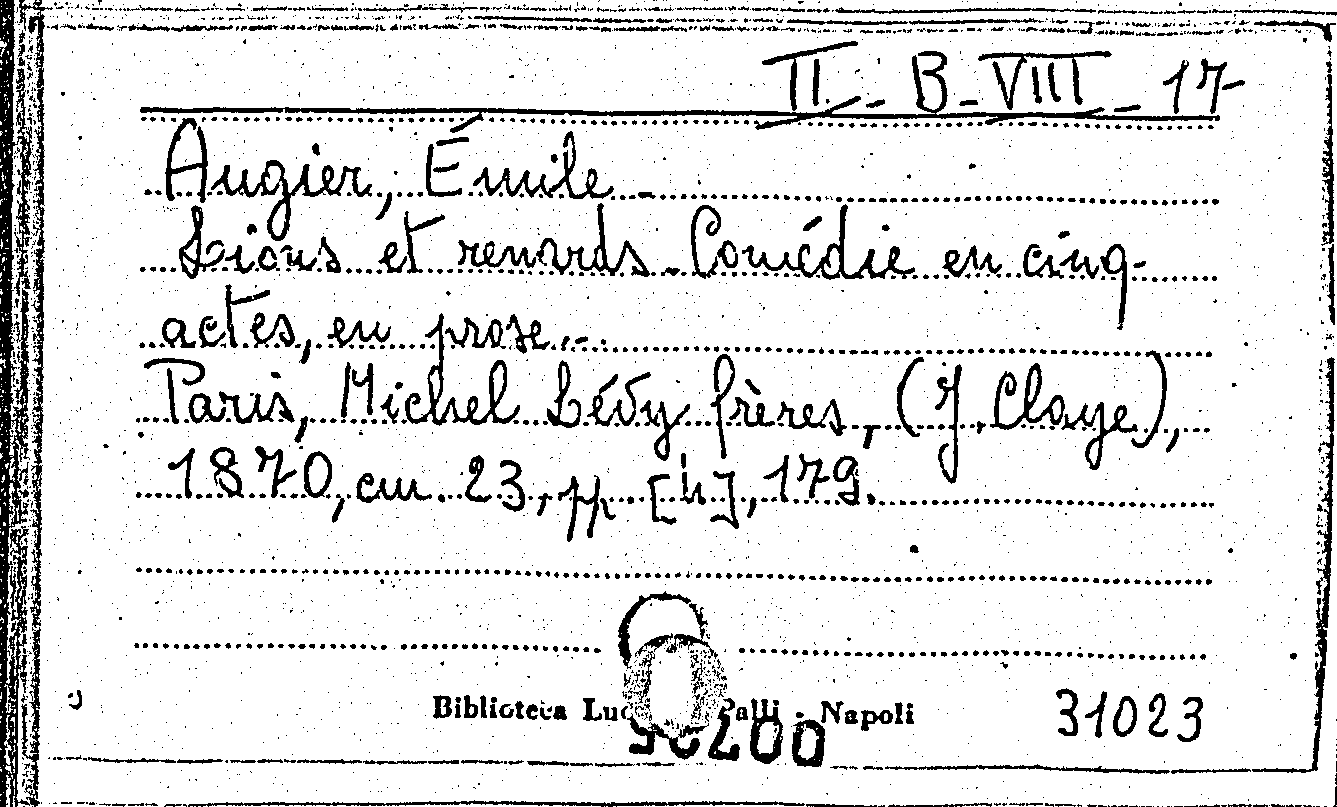 II - B - VIII - 17
Augier, Émile -
Lions et renards - Comédie en cinq-
actes, en prose...
Paris, Michel Lévy frères, (J. Claye),
1870, cm. 23, pp [4], 179.
Biblioteca Palli - Napoli 31023